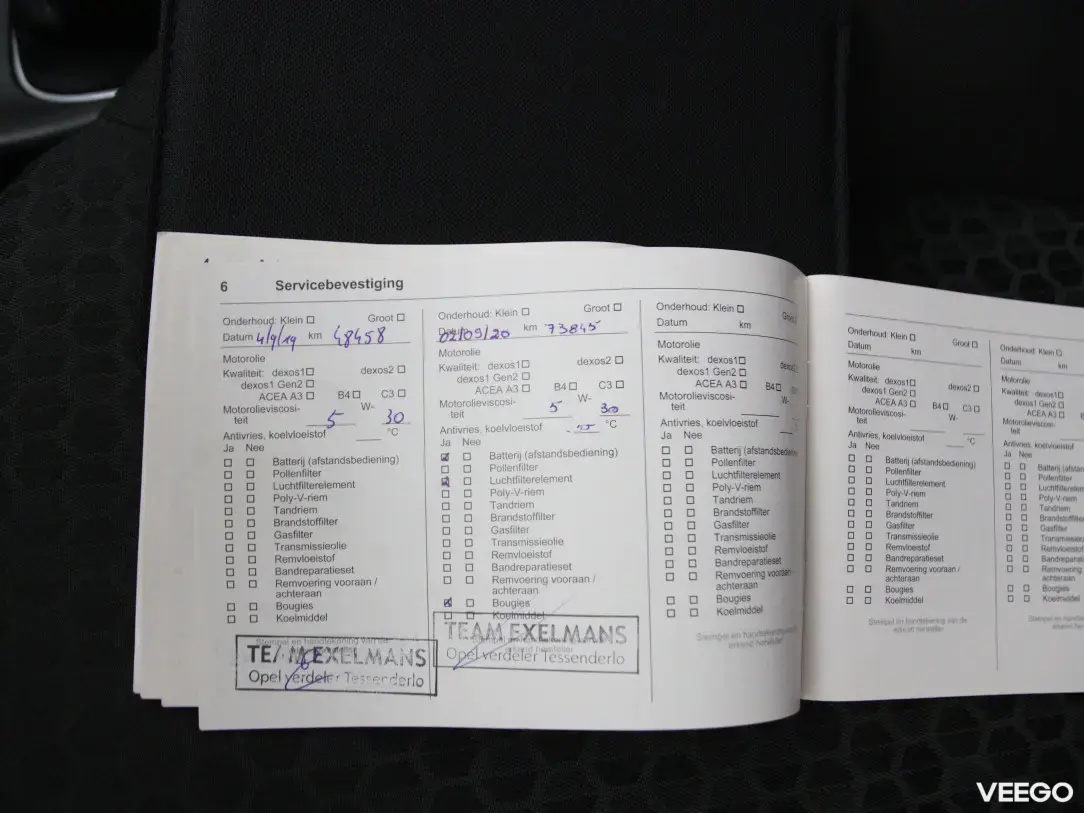 6 Servicebevestiging
Onderhoud: Klein ☐ Groot ☐
Datum 4/9/19 km 48458
Motorolie
Kwaliteit: dexos1 ☐ dexos2 ☐
dexos1 Gen2 ☐
ACEA A3 ☐ B4 ☐ C3 ☐
Motorolieviscosi- W-
teit 5 30
Antivries, koelvloeistof °C
Ja Nee
☐ ☐ Batterij (afstandsbediening)
☐ ☐ Pollenfilter
☐ ☐ Luchtfilterelement
☐ ☐ Poly-V-riem
☐ ☐ Tandriem
☐ ☐ Brandstoffilter
☐ ☐ Gasfilter
☐ ☐ Transmissieolie
☐ ☐ Remvloeistof
☐ ☐ Bandreparatieset
☐ ☐ Remvoering vooraan /
achteraan
☐ ☐ Bougies
☐ ☐ Koelmiddel
Stempel en handtekening van de
TEAM EXELMANS
Opel verdeler Tessenderlo
Onderhoud: Klein ☐ Groot ☐
Datum 02/09/20 km 73845
Motorolie
Kwaliteit: dexos1 ☐ dexos2 ☐
dexos1 Gen2 ☐
ACEA A3 ☐ B4 ☐ C3 ☐
Motorolieviscosi- W-
teit 5 30
Antivries, koelvloeistof °C
Ja Nee
☑ ☐ Batterij (afstandsbediening)
☐ ☐ Pollenfilter
☑ ☐ Luchtfilterelement
☐ ☐ Poly-V-riem
☐ ☐ Tandriem
☐ ☐ Brandstoffilter
☐ ☐ Gasfilter
☐ ☐ Transmissieolie
☐ ☐ Remvloeistof
☐ ☐ Bandreparatieset
☐ ☐ Remvoering vooraan /
achteraan
☑ ☐ Bougies
☐ ☐ Koelmiddel
TEAM EXELMANS
erkend hersteller
Opel verdeler Tessenderlo
Onderhoud: Klein ☐
Datum km
Motorolie
Kwaliteit: dexos1 ☐
dexos1 Gen2 ☐
ACEA A3 ☐ B4 ☐
Motorolieviscosi- W-
teit
Antivries, koelvloeistof
Ja Nee
☐ ☐ Batterij (afstandsbedienin
☐ ☐ Pollenfilter
☐ ☐ Luchtfilterelement
☐ ☐ Poly-V-riem
☐ ☐ Tandriem
☐ ☐ Brandstoffilter
☐ ☐ Gasfilter
☐ ☐ Transmissieolie
☐ ☐ Remvloeistof
☐ ☐ Bandreparatieset
☐ ☐ Remvoering vooraan
achteraan
☐ ☐ Bougies
☐ ☐ Koelmiddel
Stempel en handtekening van
erkend hersteller
Onderhoud: Klein ☐ Groot ☐
Datum km
Motorolie
Kwaliteit: dexos1 ☐ dexos2 ☐
dexos1 Gen2 ☐
ACEA A3 ☐ B4 ☐ C3 ☐
Motorolieviscosi- W-
teit
Antivries, koelvloeistof °C
Ja Nee
☐ ☐ Batterij (afstandsbediening)
☐ ☐ Pollenfilter
☐ ☐ Luchtfilterelement
☐ ☐ Poly-V-riem
☐ ☐ Tandriem
☐ ☐ Brandstoffilter
☐ ☐ Gasfilter
☐ ☐ Transmissieolie
☐ ☐ Remvloeistof
☐ ☐ Bandreparatieset
☐ ☐ Remvoering vooraan /
achteraan
☐ ☐ Bougies
☐ ☐ Koelmiddel
Stempel en handtekening van de
erkend hersteller
Onderhoud: Klein ☐
Datum km
Motorolie
Kwaliteit: dexos1 ☐
dexos1 Gen2 ☐
ACEA A3 ☐
Motorolieviscosi-
teit
Antivries, koelvloeistof
Ja Nee
☐ ☐ Batterij (afstan
☐ ☐ Pollenfilter
☐ ☐ Luchtfilterelem
☐ ☐ Poly-V-riem
☐ ☐ Tandriem
☐ ☐ Brandstoffilter
☐ ☐ Gasfilter
☐ ☐ Transmissieo
☐ ☐ Remvloeistof
☐ ☐ Bandreparatie
☐ ☐ Remvoering v
achteraan
☐ ☐ Bougies
☐ ☐ Koelmiddel
VEEGO